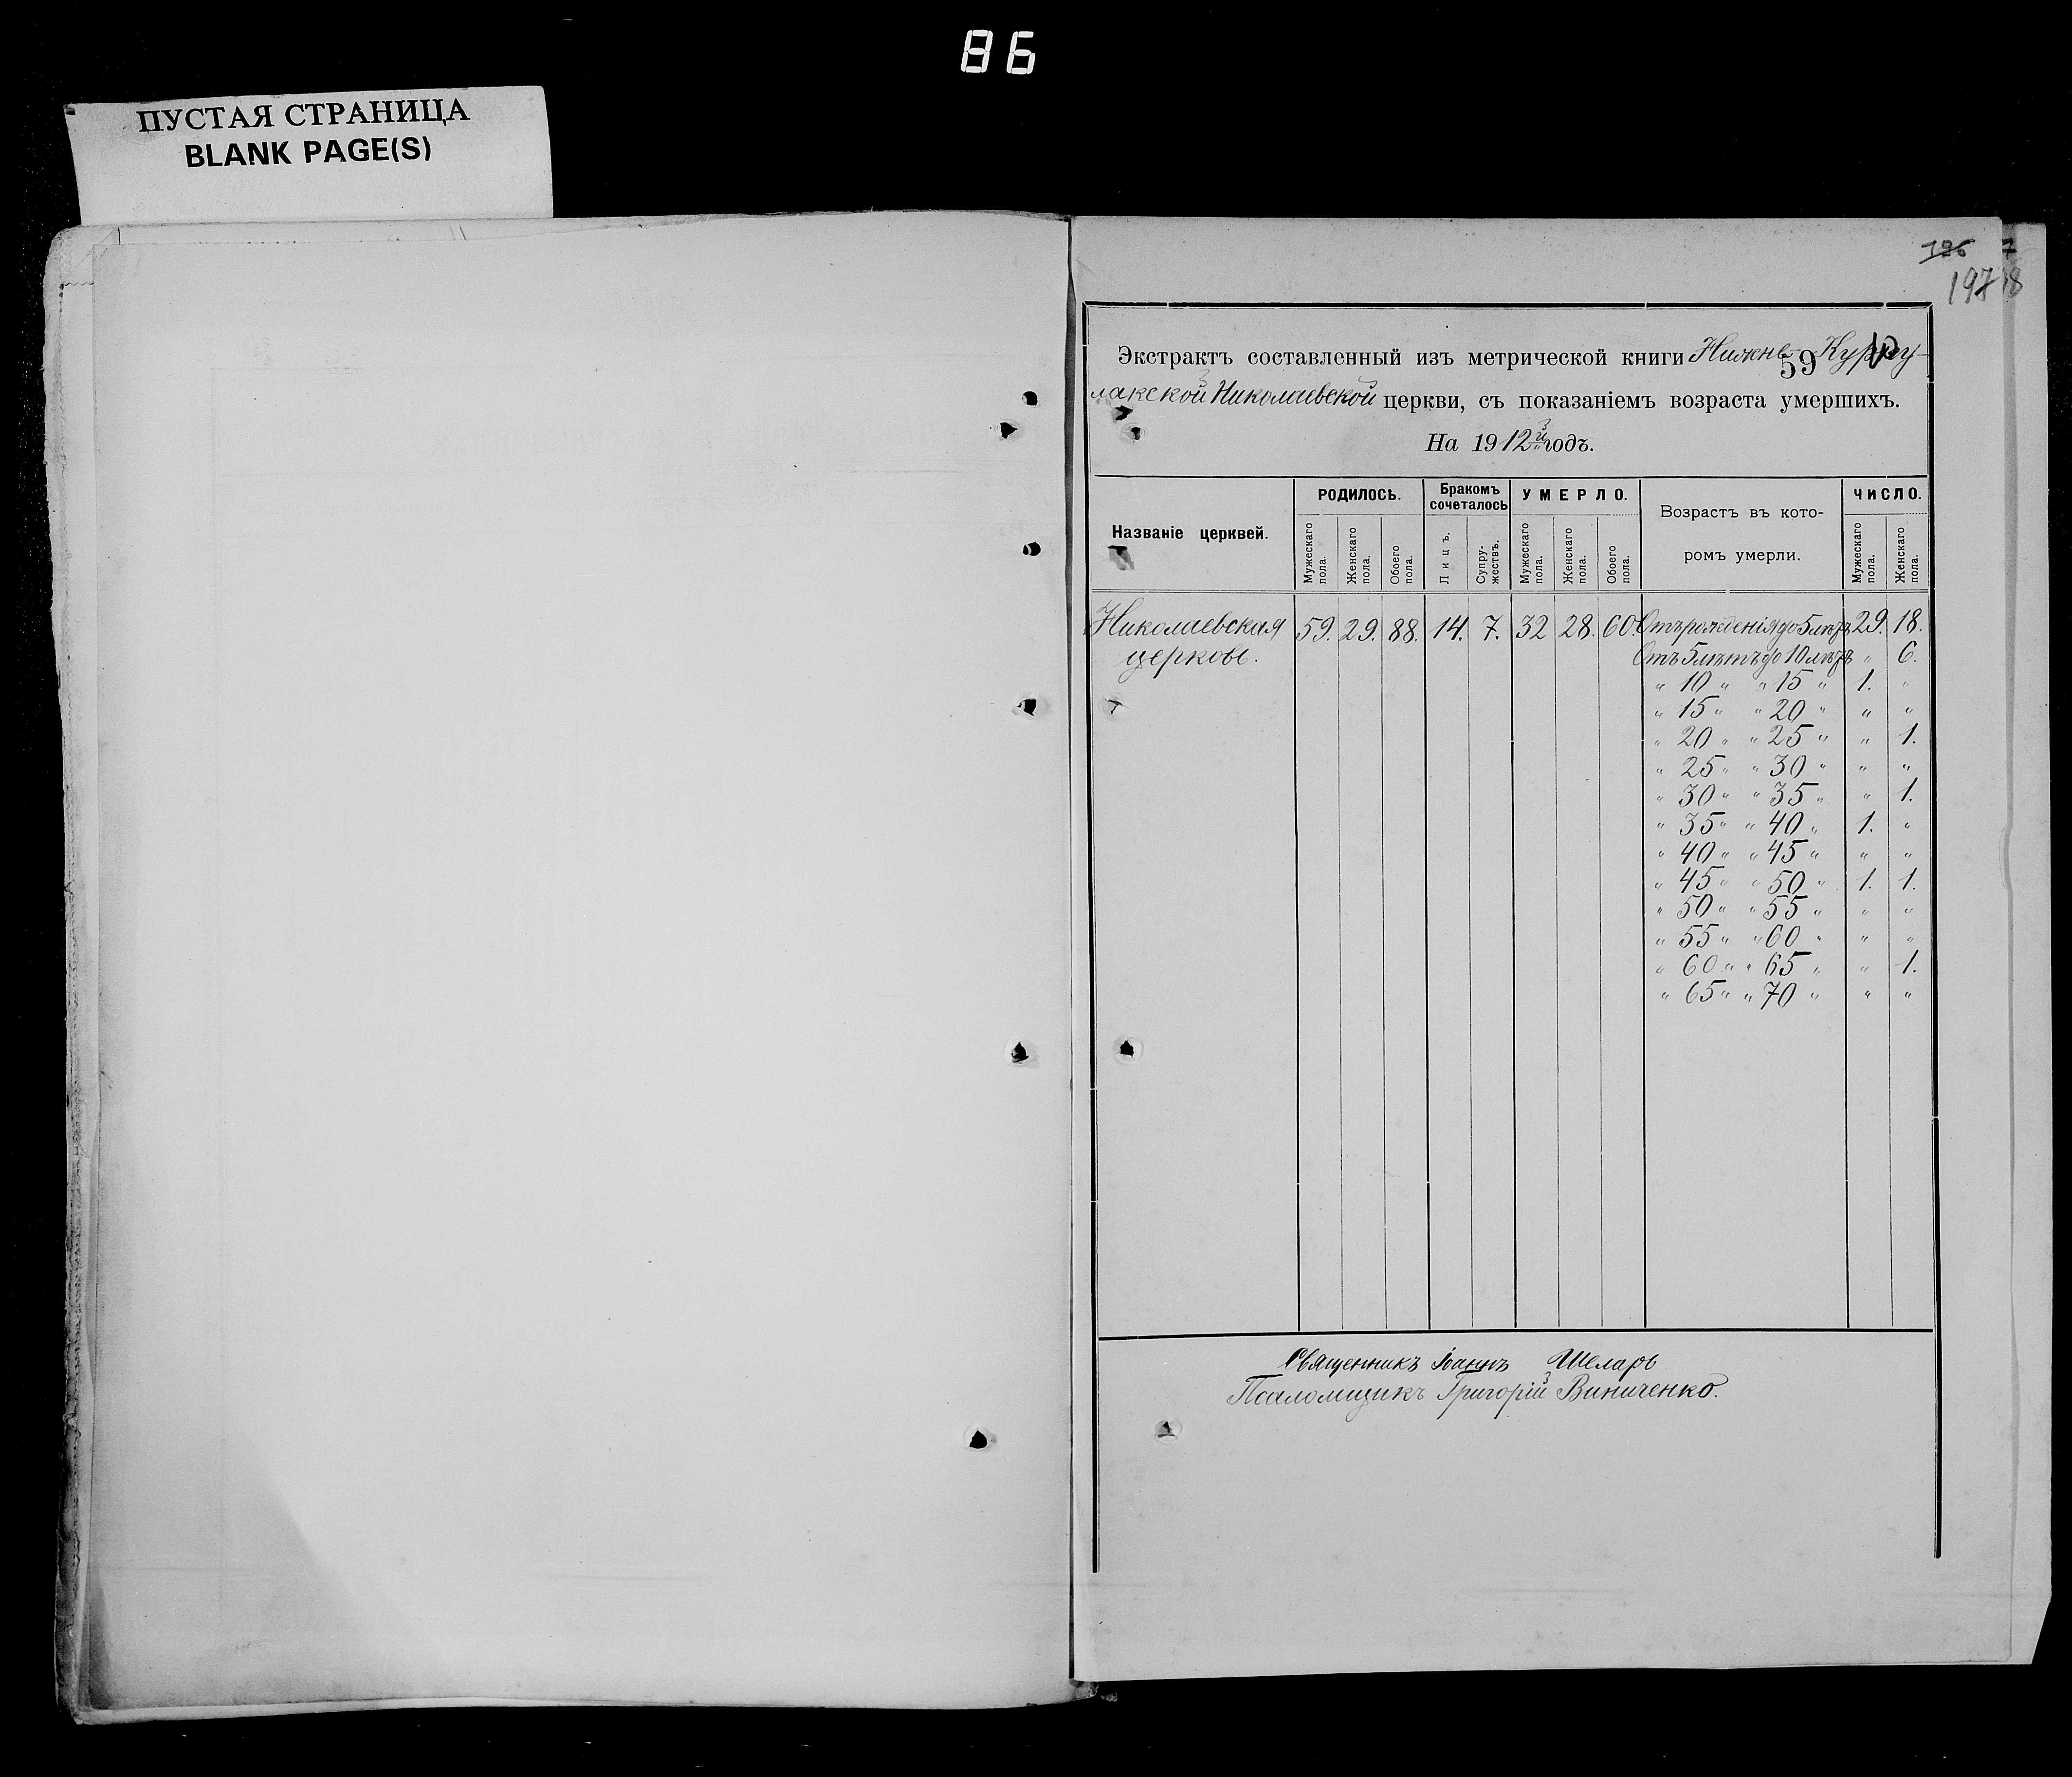 86
ПУСТАЯ СТРАНИЦА
BLANK PAGE(S)
126 7
197 18
Экстрактъ составленный изъ метрической книги Нижне-Курку-
59
лакской Николаевской церкви, съ показаніемъ возраста умершихъ.
На 1912й годъ.
Названіе церквей. РОДИЛОСЬ. Бракомъ сочеталось УМЕРЛО. Возрастъ въ кото-ромъ умерли. ЧИСЛО.
Мужескаго пола. Женскаго пола. Обоего пола. Лицъ. Супру-жествъ. Мужескаго пола. Женскаго пола. Обоего пола. Мужескаго пола. Женскаго пола.
Николаевская 59. 29. 88. 14. 7. 32 28. 60. Отъ рожденія до 5 лѣтъ 29. 18.
церковь. Отъ 5 лѣтъ до 10 лѣтъ " 6.
" 10 " " 15 " 1. "
" 15 " " 20 " " "
" 20 " " 25 " " 1.
" 25 " " 30 " " "
" 30 " " 35 " " 1.
" 35 " " 40 " 1. "
" 40 " " 45 " " "
" 45 " " 50 " 1. 1.
" 50 " " 55 " " "
" 55 " " 60 " " "
" 60 " " 65 " " 1.
" 65 " " 70 " " "
Священникъ Іоаннъ Шеларь
Псаломщикъ Григорій Виниченко.